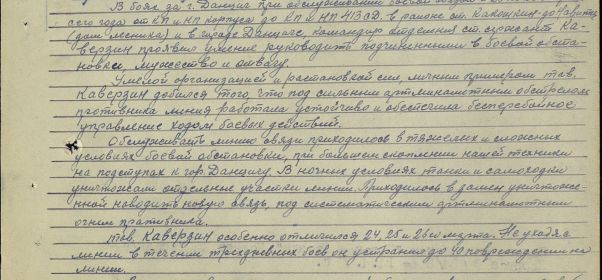 В боях за г. Данциг при обслуживании боевой
сего года от КП и НП корпуса до КП и НП 413 СД. в районе ст. до
(дом лесника) и в городе Данциге, командир отделения ст. сержант Ка-
верзин проявил умение руководить подчиненными в боевой обста-
новке, мужество и отвагу.
Умелой организацией и растановкой сил, личным примером тов.
Каверзин добился того, что под сильным артминометным обстрелом
противника линия работала устойчиво и обеспечила бесперебойное
управление ходом боевых действий.
Обслуживать линию связи приходилось в тяжелых и сложных
условиях боевой обстановки, при большом скоплении нашей техники
на подступах к гор. Данцигу. В ночных условиях танки и самоходки
уничтожали отдельные участки линии. Приходилось в замен уничтоже-
нной наводить новую связь, под систематическим артминометным
огнем противника.
тов. Каверзин особенно отличился 24, 25 и 26го марта. Не уходя с
линии в течении трехдневных боев он устранил до 40 повреждений на
линии.